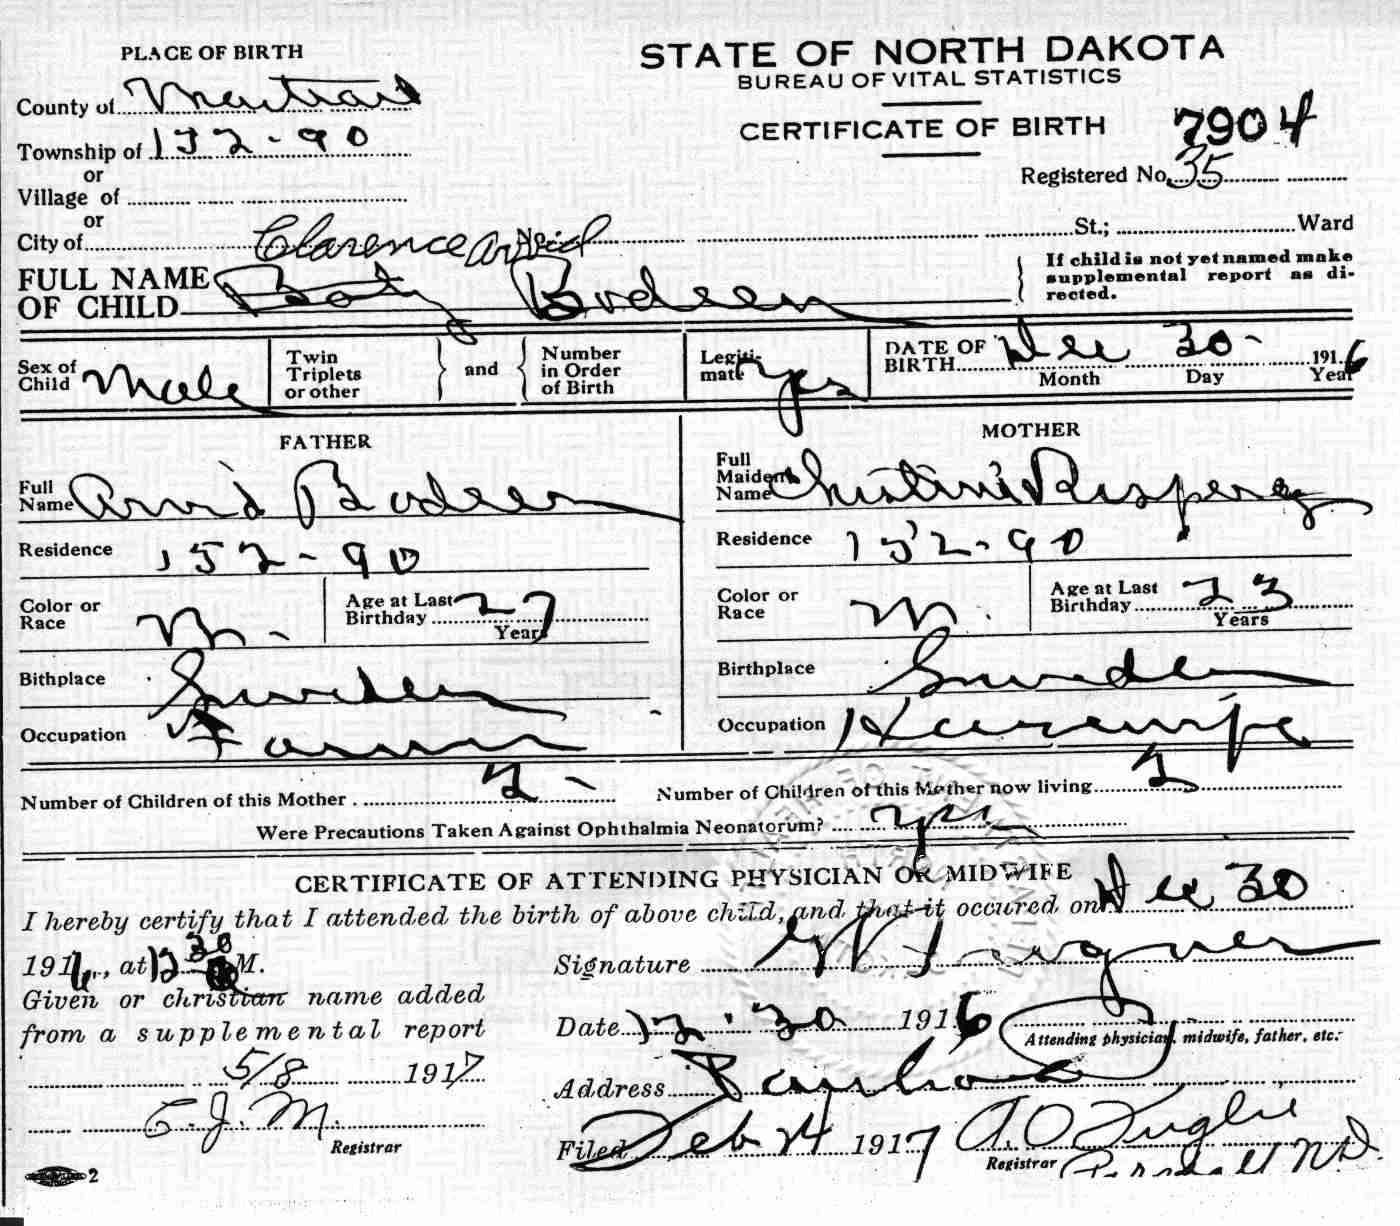 PLACE OF BIRTH
STATE OF NORTH DAKOTA
BUREAU OF VITAL STATISTICS
County of Mountrail
CERTIFICATE OF BIRTH 7904
Township of 152-90
or
Registered No. 35
Village of
or
City of St.; Ward
Clarence Arvid
FULL NAME OF CHILD Baby Bodeen
If child is not yet named make supplemental report as directed.
Sex of Child Male
Twin Triplets or other
and
Number in Order of Birth
Legitimate yes
DATE OF BIRTH Dec 30 - 1916
Month Day Year
FATHER
MOTHER
Full Name Arvid Bodeen
Full Maiden Name Christine
Residence 152-90
Residence 152-90
Color or Race W.
Age at Last Birthday 27
Years
Color or Race W.
Age at Last Birthday 23
Years
Bithplace Sweden
Birthplace Sweden
Occupation Farmer
Occupation Housewife
Number of Children of this Mother 2 -
Number of Children of this Mother now living 2
Were Precautions Taken Against Ophthalmia Neonatorum? yes
CERTIFICATE OF ATTENDING PHYSICIAN OR MIDWIFE
I hereby certify that I attended the birth of above child, and that it occured on Dec 30
1916, at 12 30 M.
Signature
Given or christian name added
from a supplemental report
Date 12-30 1916
Attending physician, midwife, father, etc.
5/8 1917
Address
E. J. M.
Registrar
Filed Feb 24 1917
A. O. Fuglie
Registrar
Parshall N.D.
2